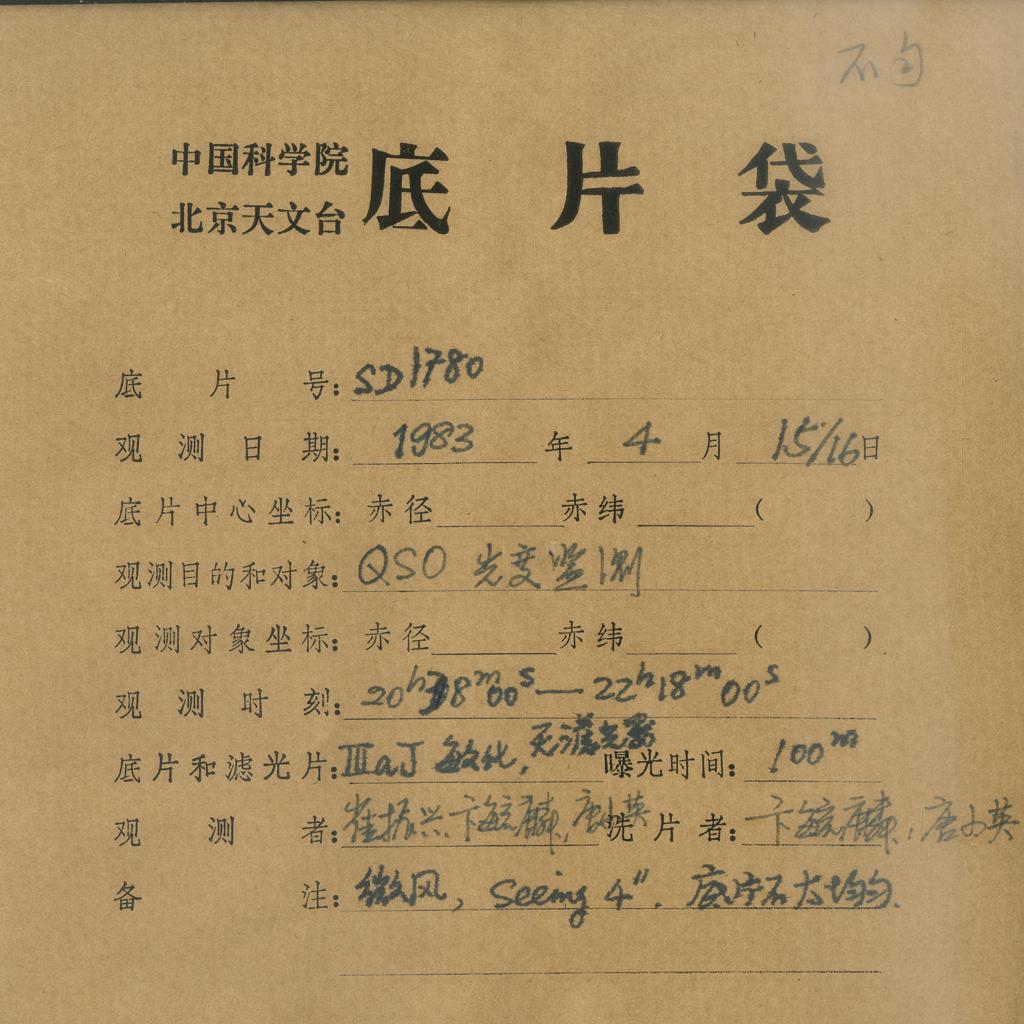 不匀
中国科学院
北京天文台 底片袋
底片号: SD1780
观测日期: 1983 年 4 月 15/16 日
底片中心坐标: 赤径 赤纬 ( )
观测目的和对象: QSO 光度监测
观测对象坐标: 赤径 赤纬 ( )
观测时刻: 20h38m00s — 22h18m00s
底片和滤光片: IIIaJ 敏化, 无滤光器 曝光时间: 100m
观测者: 崔振兴, 卞毓麟, 唐小英 洗片者: 卞毓麟, 唐小英
备注: 微风, Seeing 4". 底片不大均匀.